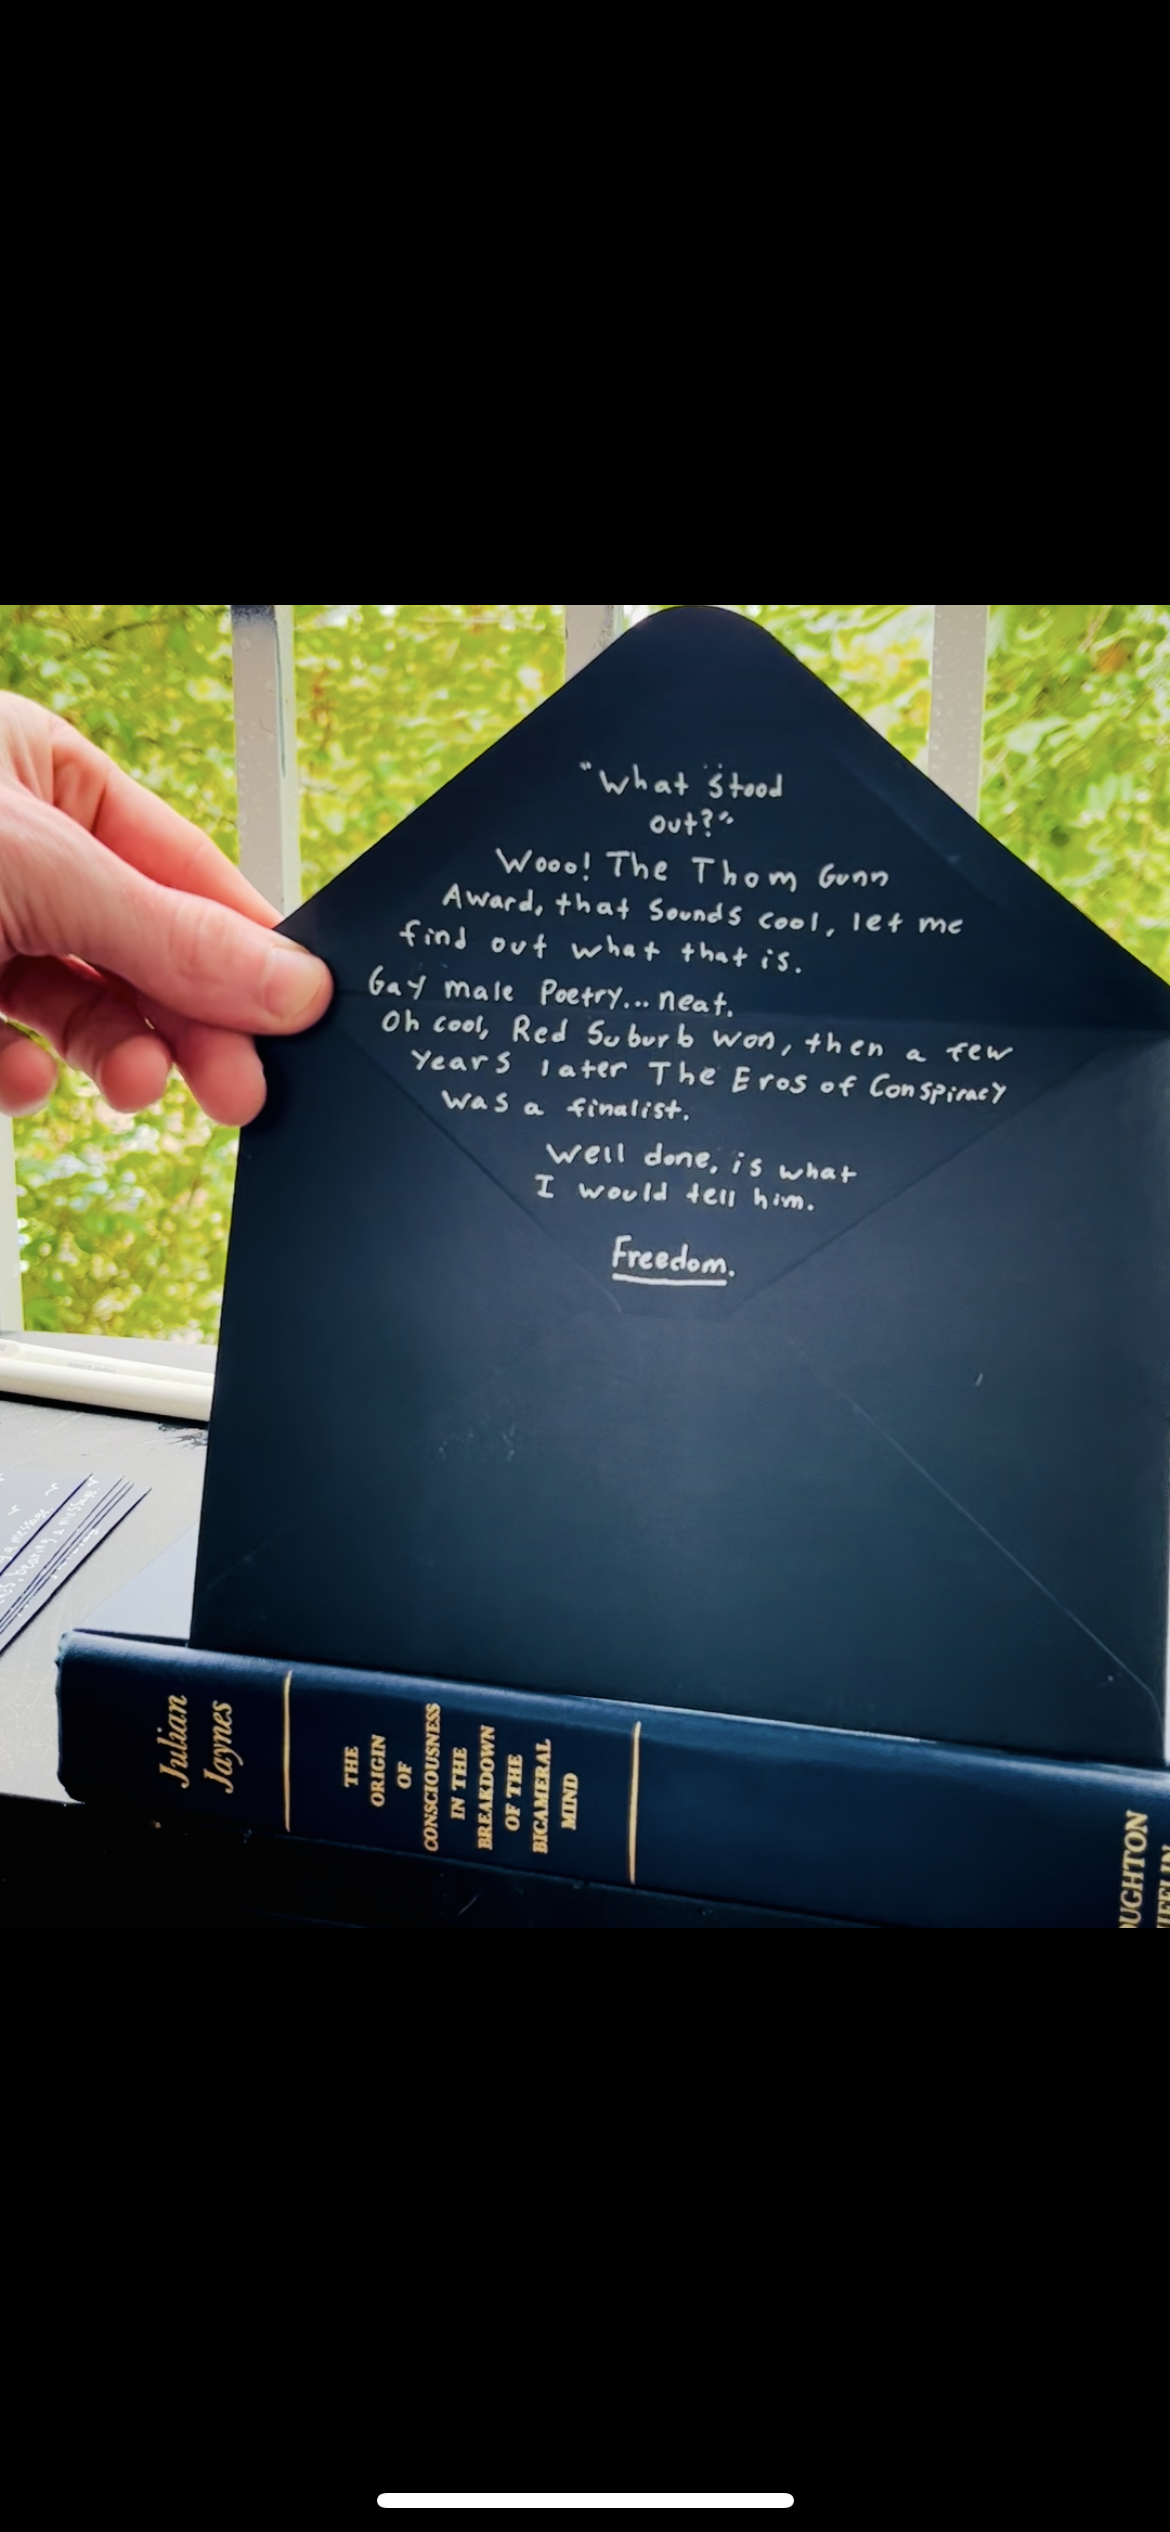 "What Stood
out?"
Wooo! The Thom Gunn
Award, that sounds cool, let me
find out what that is.
Gay male Poetry... neat.
Oh cool, Red Suburb won, then a few
years later The Eros of Conspiracy
was a finalist.
Well done, is what
I would tell him.
Freedom.
a message
bearing a message
Julian
Jaynes
THE
ORIGIN
OF
CONSCIOUSNESS
IN THE
BREAKDOWN
OF THE
BICAMERAL
MIND
OUGHTON
IFFLIN